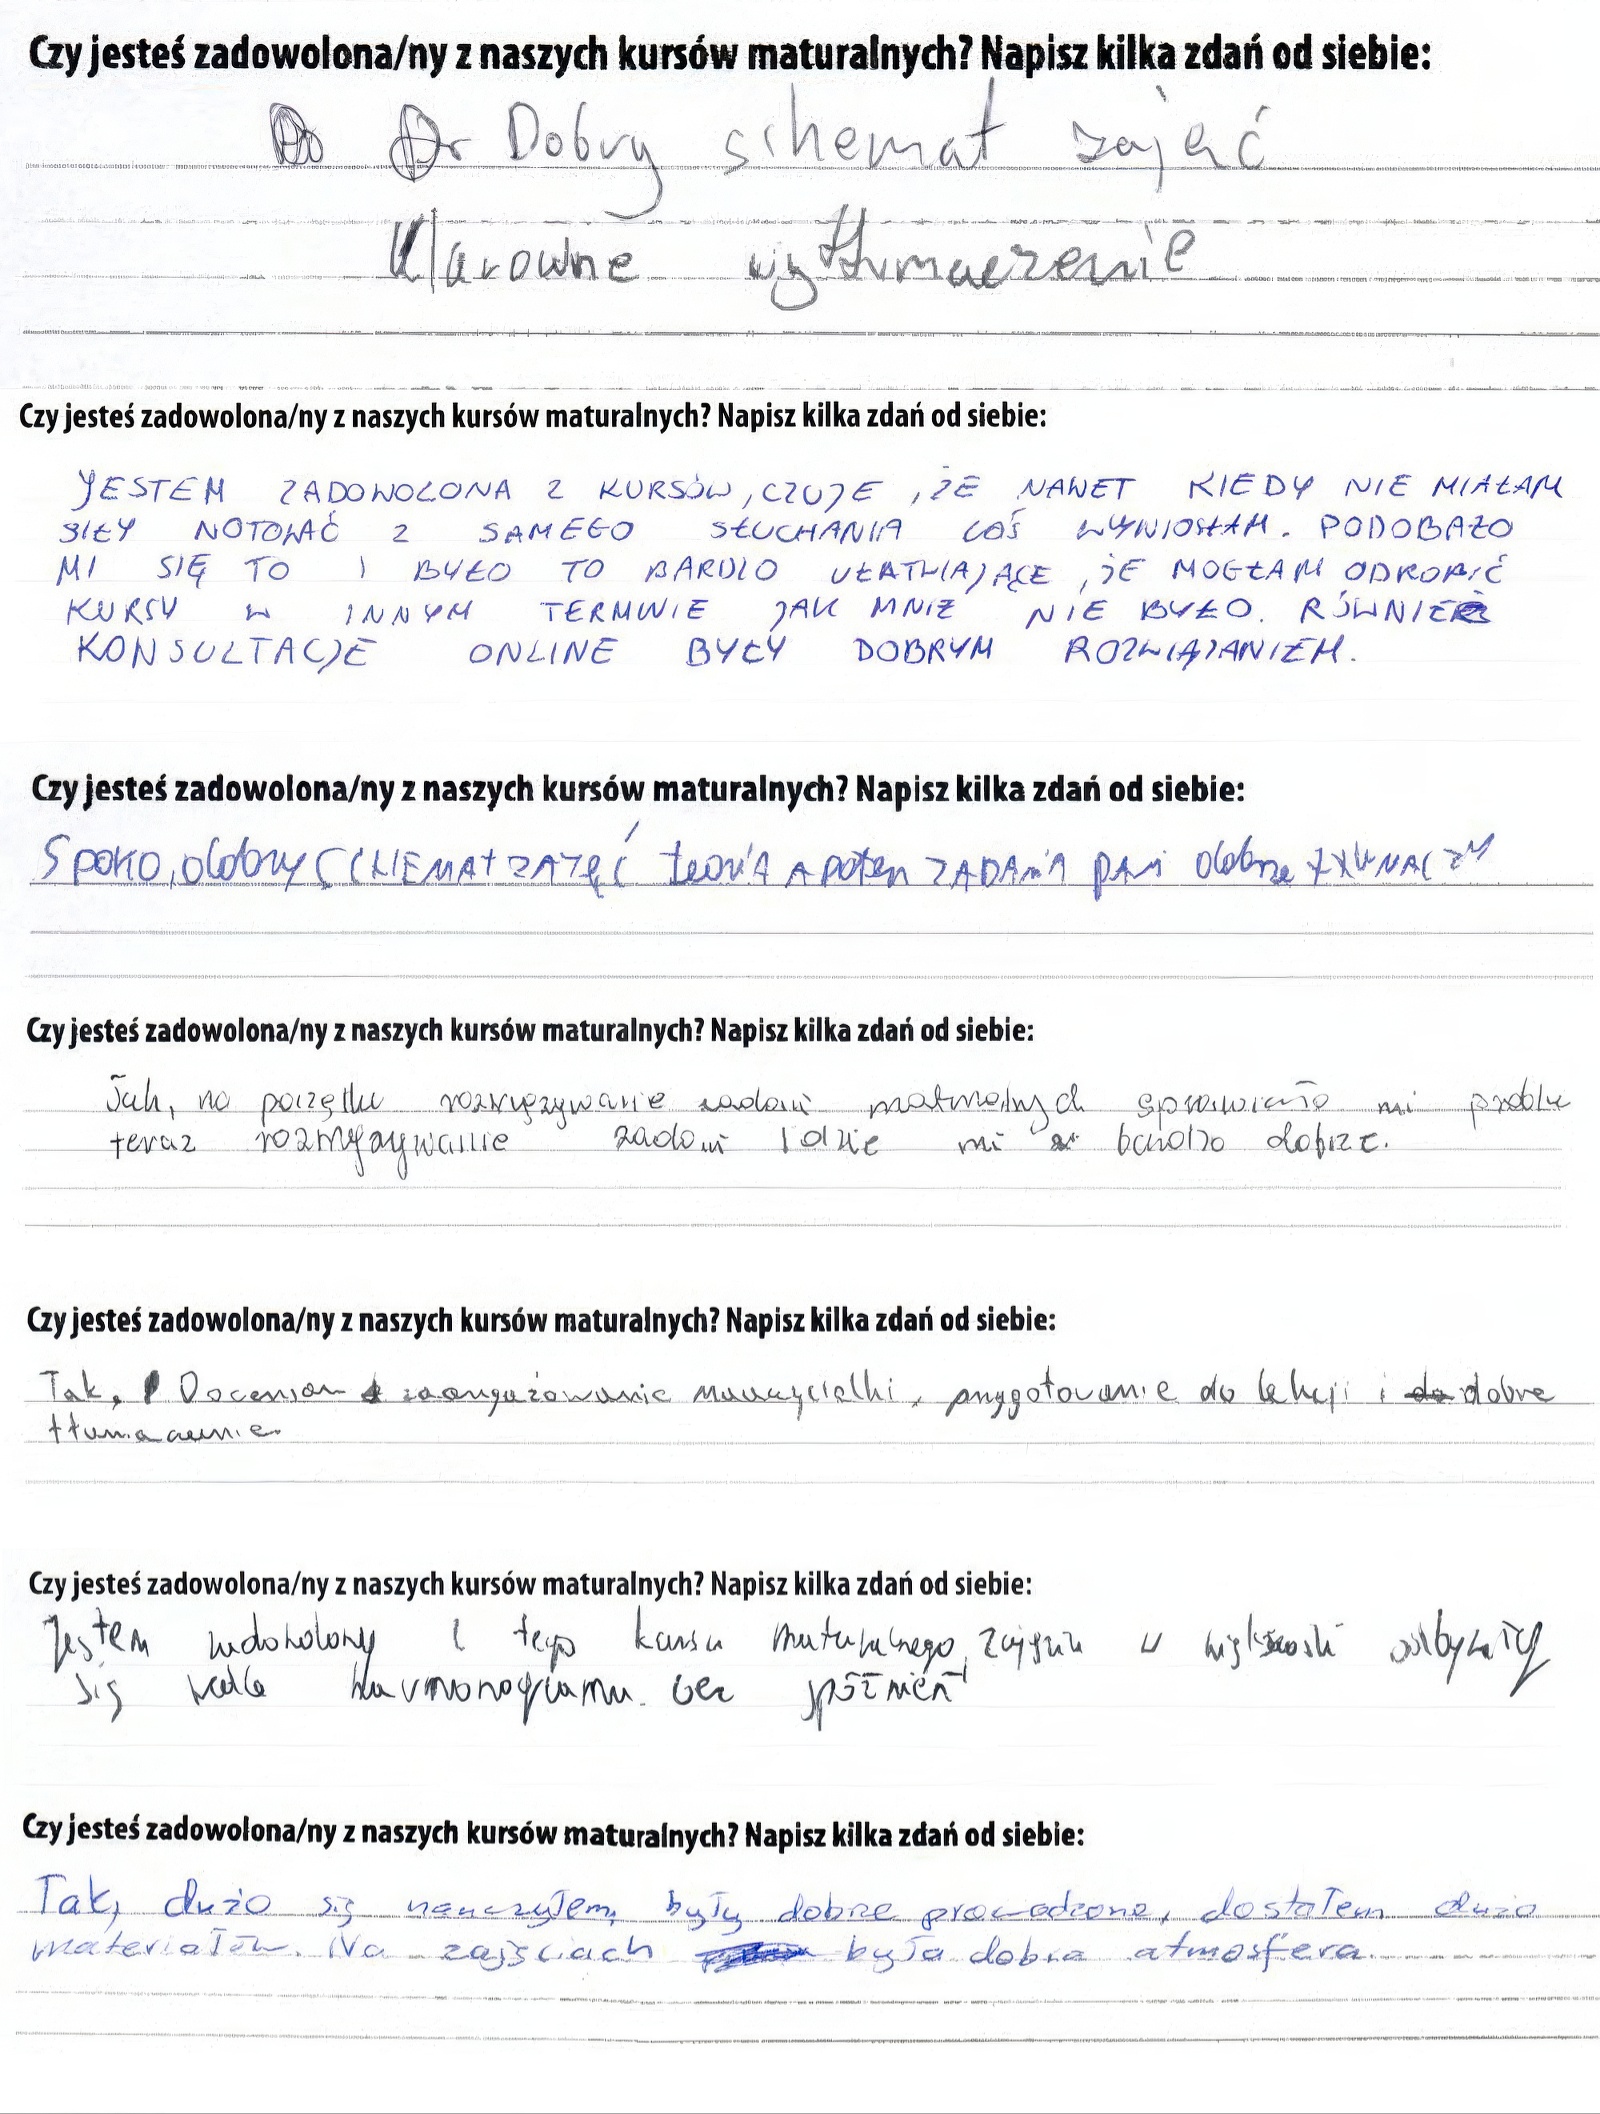 Czy jesteś zadowolona/ny z naszych kursów maturalnych? Napisz kilka zdań od siebie:
Do Dr Dobry schemat zajęć
Klarowne wytłumaczenie
Czy jesteś zadowolona/ny z naszych kursów maturalnych? Napisz kilka zdań od siebie:
JESTEM ZADOWOLONA Z KURSÓW, CZUJE, ŻE NAWET KIEDY NIE MIAŁAM
SIŁY NOTOWAĆ Z SAMEGO SŁUCHANIA COŚ WYNIOSŁAM. PODOBAŁO
MI SIĘ TO I BYŁO TO BARDZO UŁATWIAJĄCE, ŻE MOGŁAM ODROBIĆ
KURSY W INNYM TERMINIE JAK MNIE NIE BYŁO. RÓWNIEŻ
KONSULTACJE ONLINE BYŁY DOBRYM ROZWIĄZANIEM.
Czy jesteś zadowolona/ny z naszych kursów maturalnych? Napisz kilka zdań od siebie:
Spoko, dobry SCHEMAT ZAJĘĆ teoriA A potem ZADANIA pAni dobrze tłUMACZY
Czy jesteś zadowolona/ny z naszych kursów maturalnych? Napisz kilka zdań od siebie:
Tak, na początku rozwiązywanie zadań maturalnych sprawiało mi
teraz rozwiązywanie zadań idzie mi bardzo dobrze.
Czy jesteś zadowolona/ny z naszych kursów maturalnych? Napisz kilka zdań od siebie:
Tak. Doceniam zaangażowanie nauczycielki, przygotowanie do lekcji i do dobre
tłumaczenie.
Czy jesteś zadowolona/ny z naszych kursów maturalnych? Napisz kilka zdań od siebie:
Jestem zadowolony z tego kursu maturalnego, zajęcia w większości odbywały
się wedle harmonogramu. bez spóźnień
Czy jesteś zadowolona/ny z naszych kursów maturalnych? Napisz kilka zdań od siebie:
Tak, dużo się nauczyłem, były dobrze prowadzone, dostałem dużo
materiałów. Na zajęciach była dobra atmosfera.